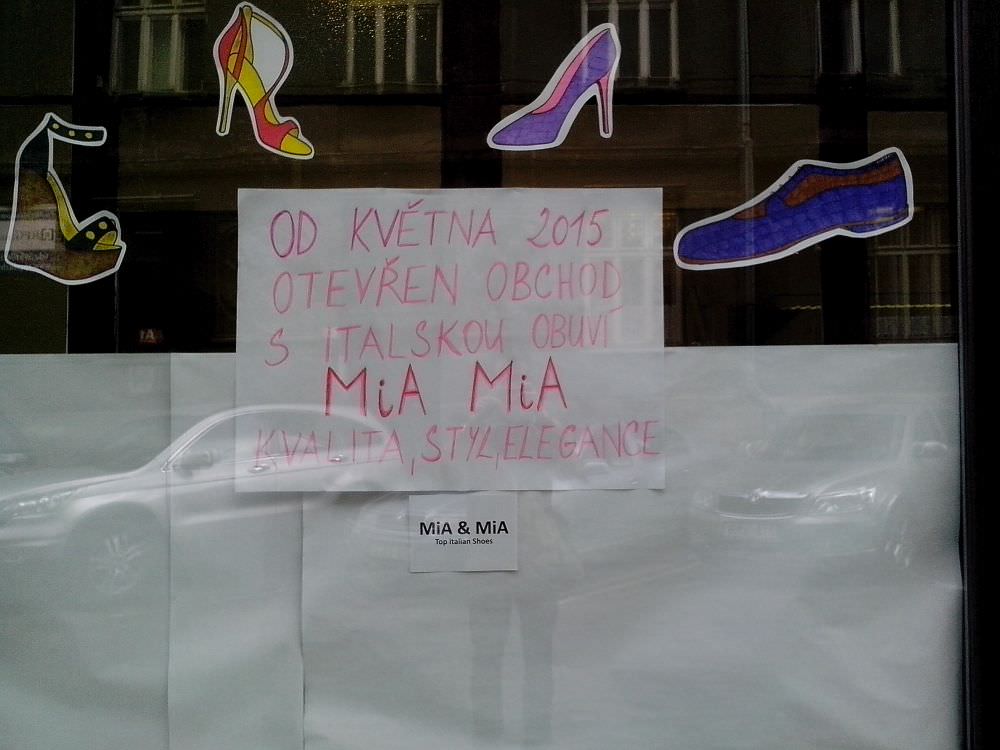 OD KVĚTNA 2015
OTEVŘEN OBCHOD
S ITALSKOU OBUVÍ
MiA MiA
KVALITA, STYL, ELEGANCE
MiA & MiA
Top italian Shoes